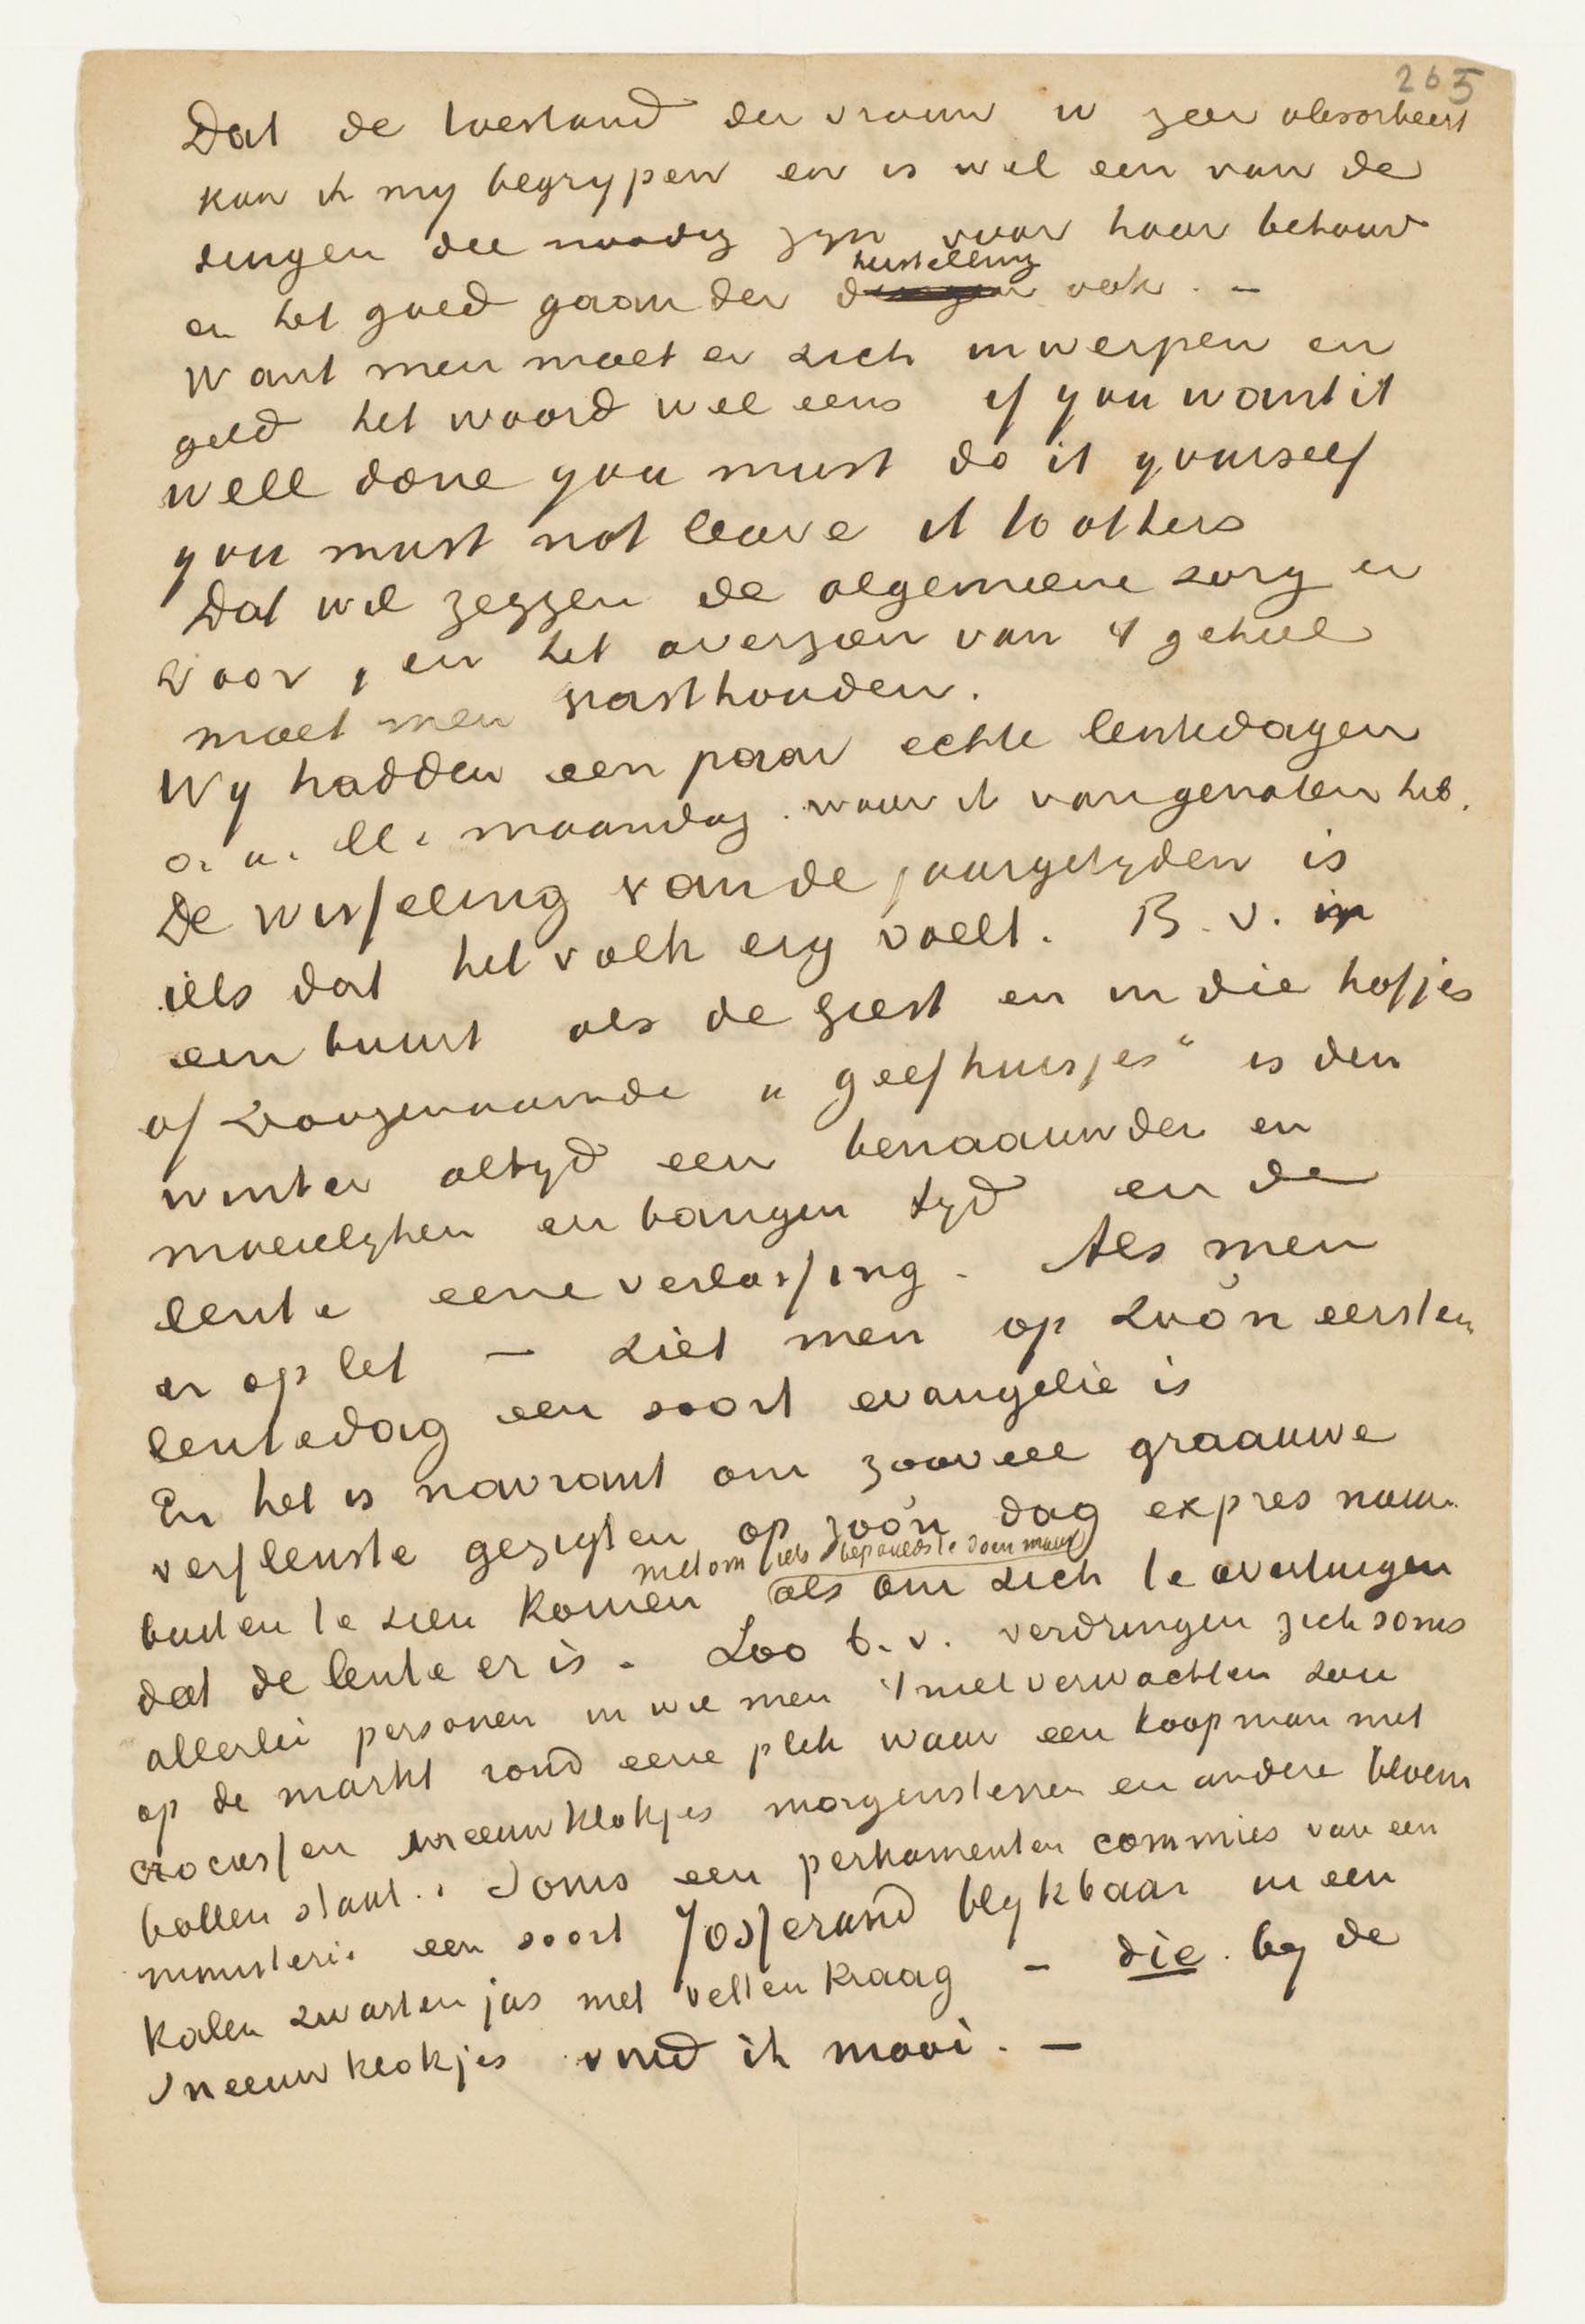 265
Dat de toestand der vrouw u zeer absorbeert
kan ik my begrypen en is wel een van de
dingen die noodig zyn voor haar behoud
herstelling
en het goed gaan der dingen ook. –
Want men moet er zich inwerpen en
geld het woord wel eens if you want it
well done you must do it yourself
you must not leave it to others
Dat wil zeggen de algemeene zorg er
voor, en het overzien van 't geheel
moet men vasthouden.
Wy hadden een paar echte lentedagen
o.a. ll. maandag. waar ik van genoten heb.
De wisseling van de jaargetyden is
iets dat het volk erg voelt. B.v. in
een buurt als de Geest en in die hofjes
of zoogenaamde „geefhuisjes" is den
winter altyd een benaauwder en
moeielyken en bangen tyd en de
lente eene verlossing. Als men
er op let – ziet men op zoo'n eersten
lentedag een soort evangelie is
En het is navrant om zooveel graauwe
verflenste gezigten op zoo'n dag expres naar
niet om iets bepaalds te doen maar
buiten te zien komen als om zich te overtuigen
dat de lente er is. Zoo b.v. verdringen zich soms
allerlei personen in wie men 't niet verwachten zou
op de markt rond eene plek waar een koopman met
crocussen sneeuwklokjes morgensterren en andere bloem
bollen staat. Soms een perkamenten commies van een
ministerie een soort Josserand blykbaar in een
kalen zwarten jas met vetten kraag – die by de
Sneeuwklokjes vind ik mooi. –